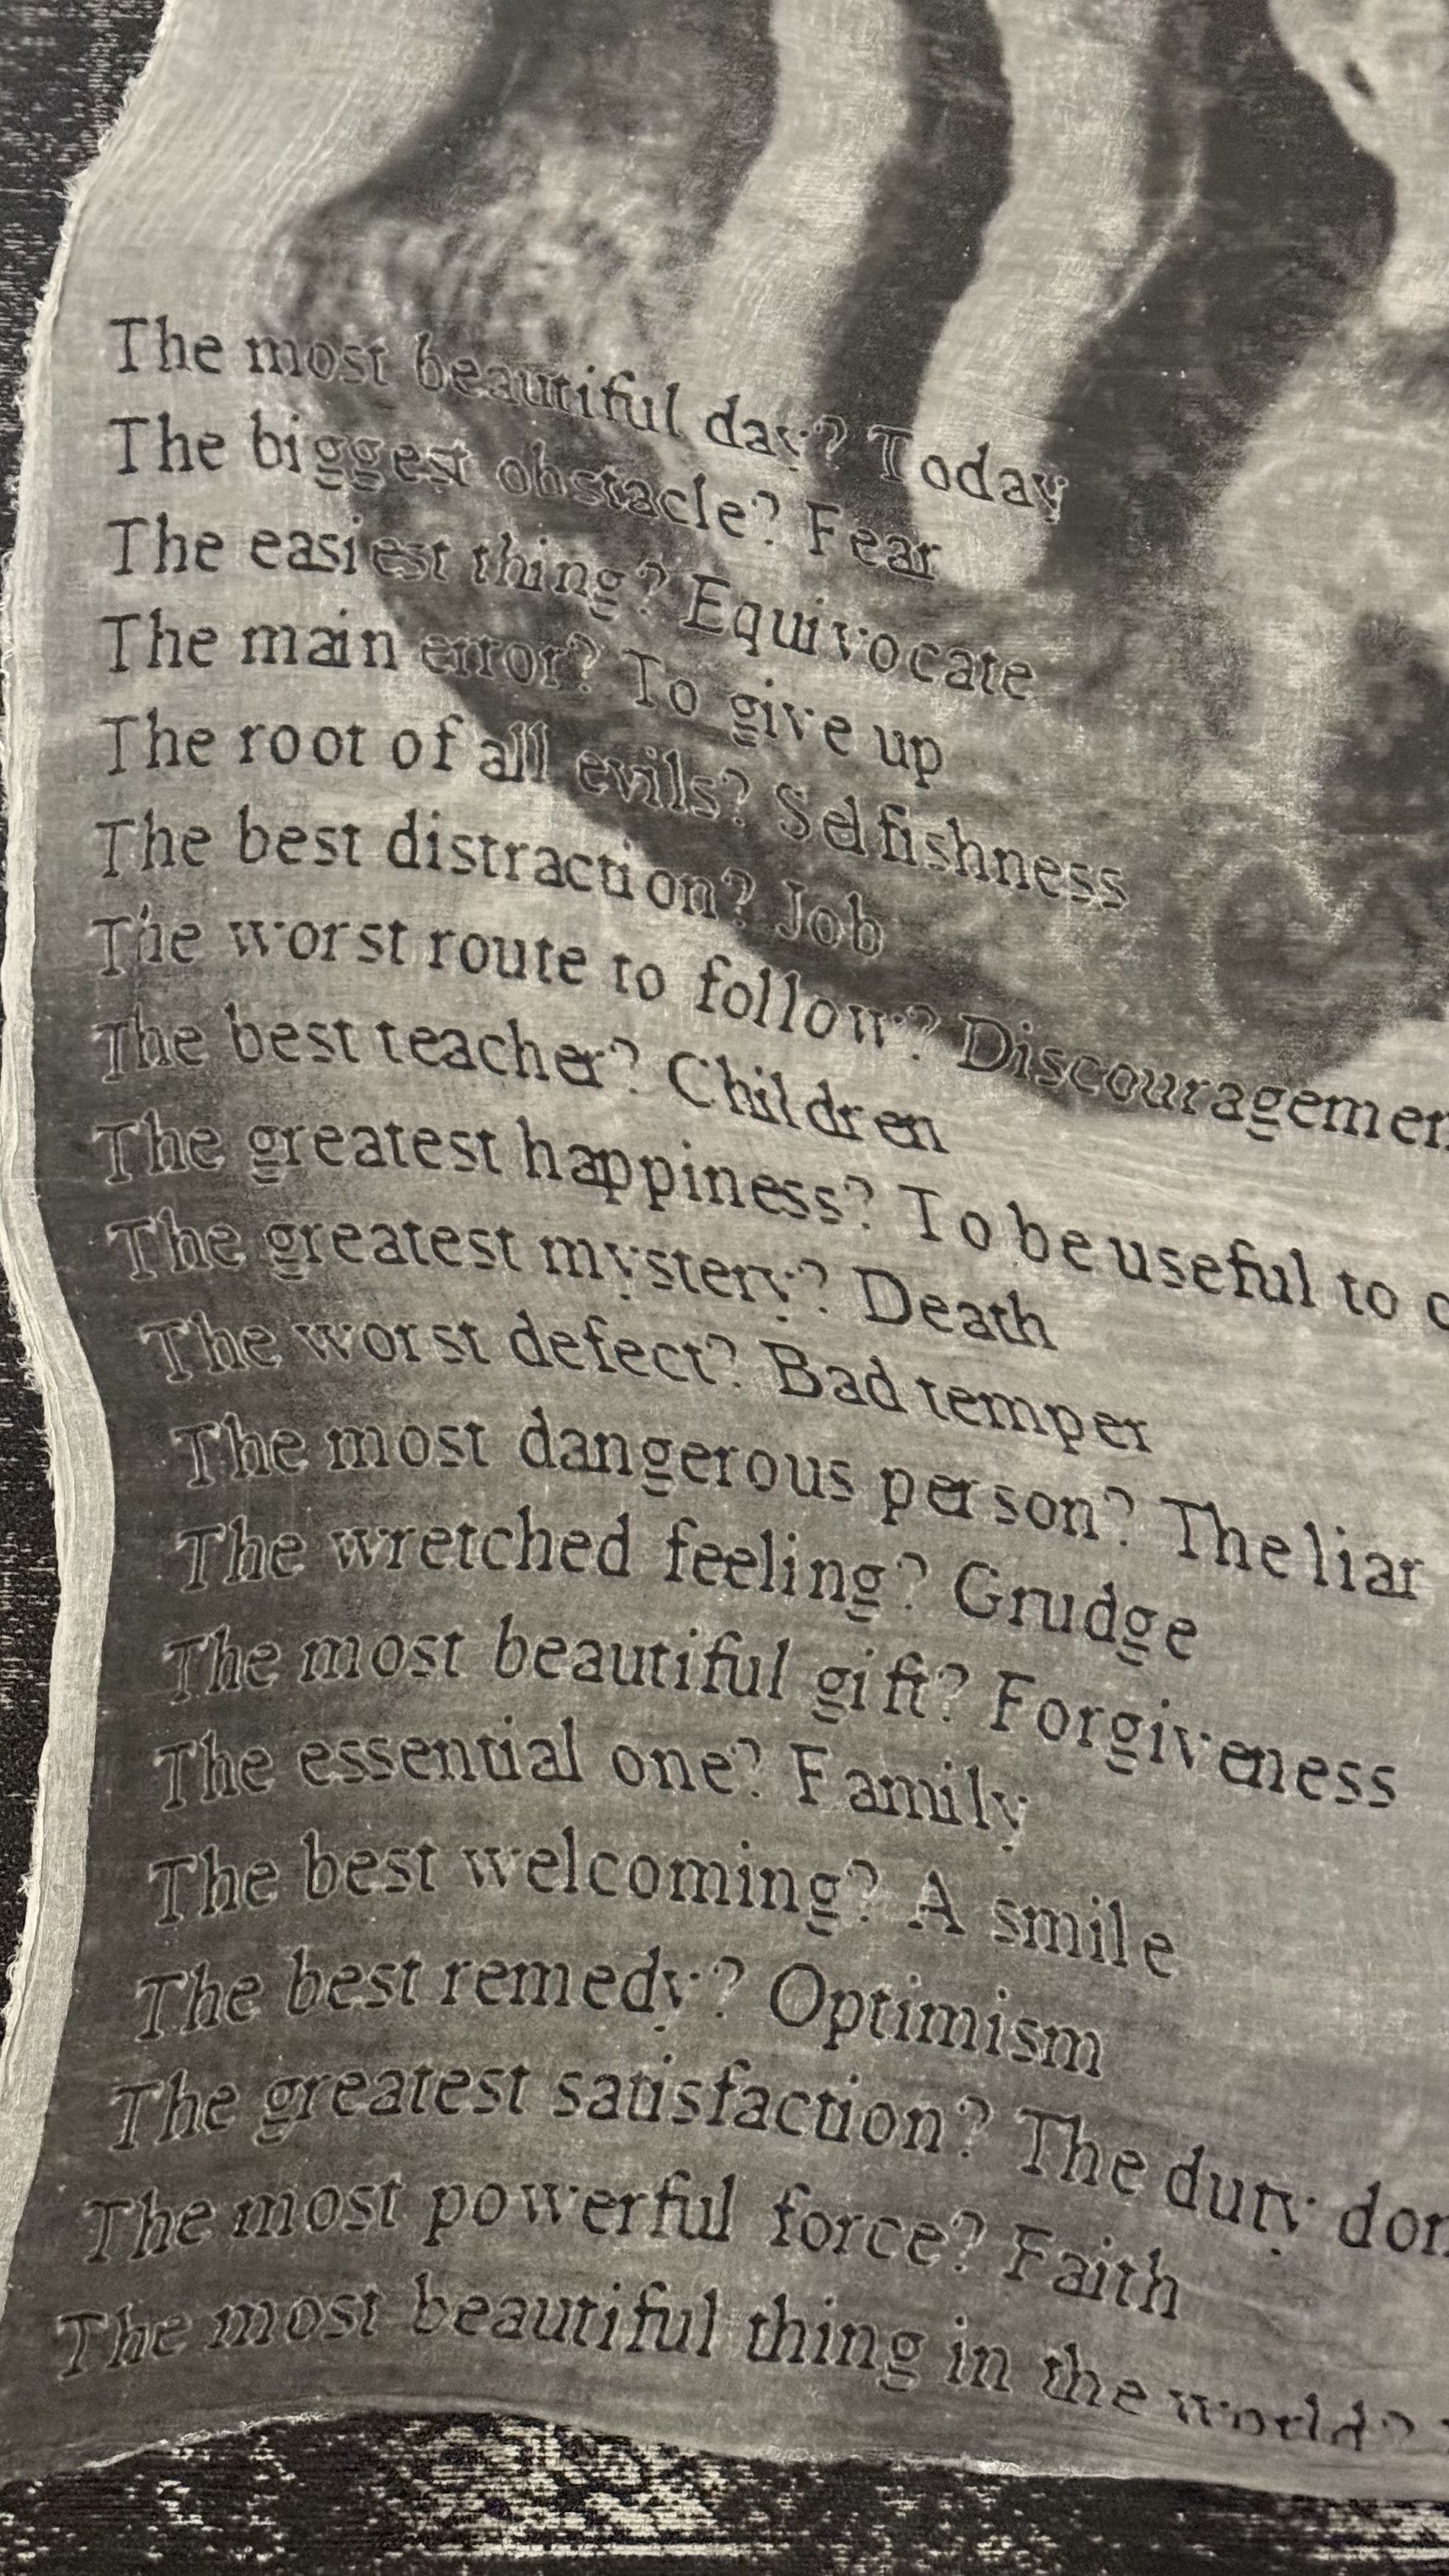 The most beautiful day? Today
The biggest obstacle? Fear
The easiest thing? Equivocate
The main error? To give up
The root of all evils? Selfishness
The best distraction? Job
The worst route to follow? Discouragemen
The best teacher? Children
The greatest happiness? To be useful to
The greatest mystery? Death
The worst defect? Bad temper
The most dangerous person? The liar
The wretched feeling? Grudge
The most beautiful gift? Forgiveness
The essential one? Family
The best welcoming? A smile
The best remedy? Optimism
The greatest satisfaction? The duty don
The most powerful force? Faith
The most beautiful thing in the world?